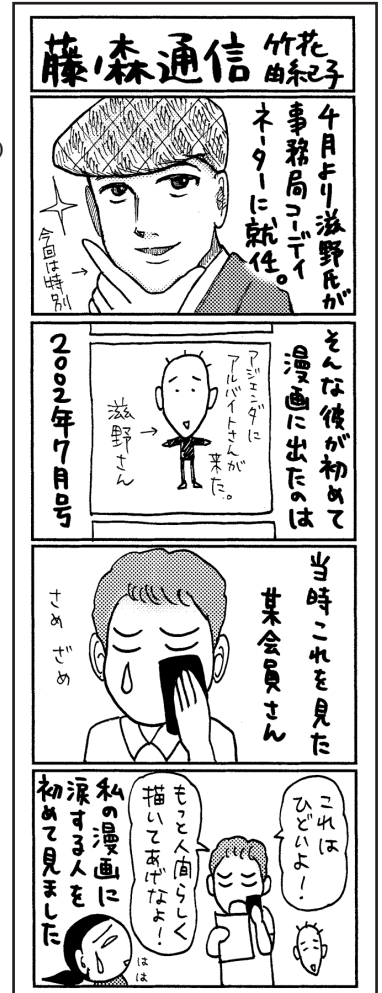 藤ノ森通信
竹花
由紀子
4月より滋野氏が
事務局コーディ
ネーターに就任。
今回は特別
そんな彼が初めて
漫画に出たのは
アジェンダに
アルバイトさんが
来た。
滋野さん
2002年7月号
当時これを見た
某会員さん
さめ ざめ
これは
ひどいよ!
もっと人間らしく
描いてあげなよ!
私の漫画に
涙する人を
初めて見ました
はは